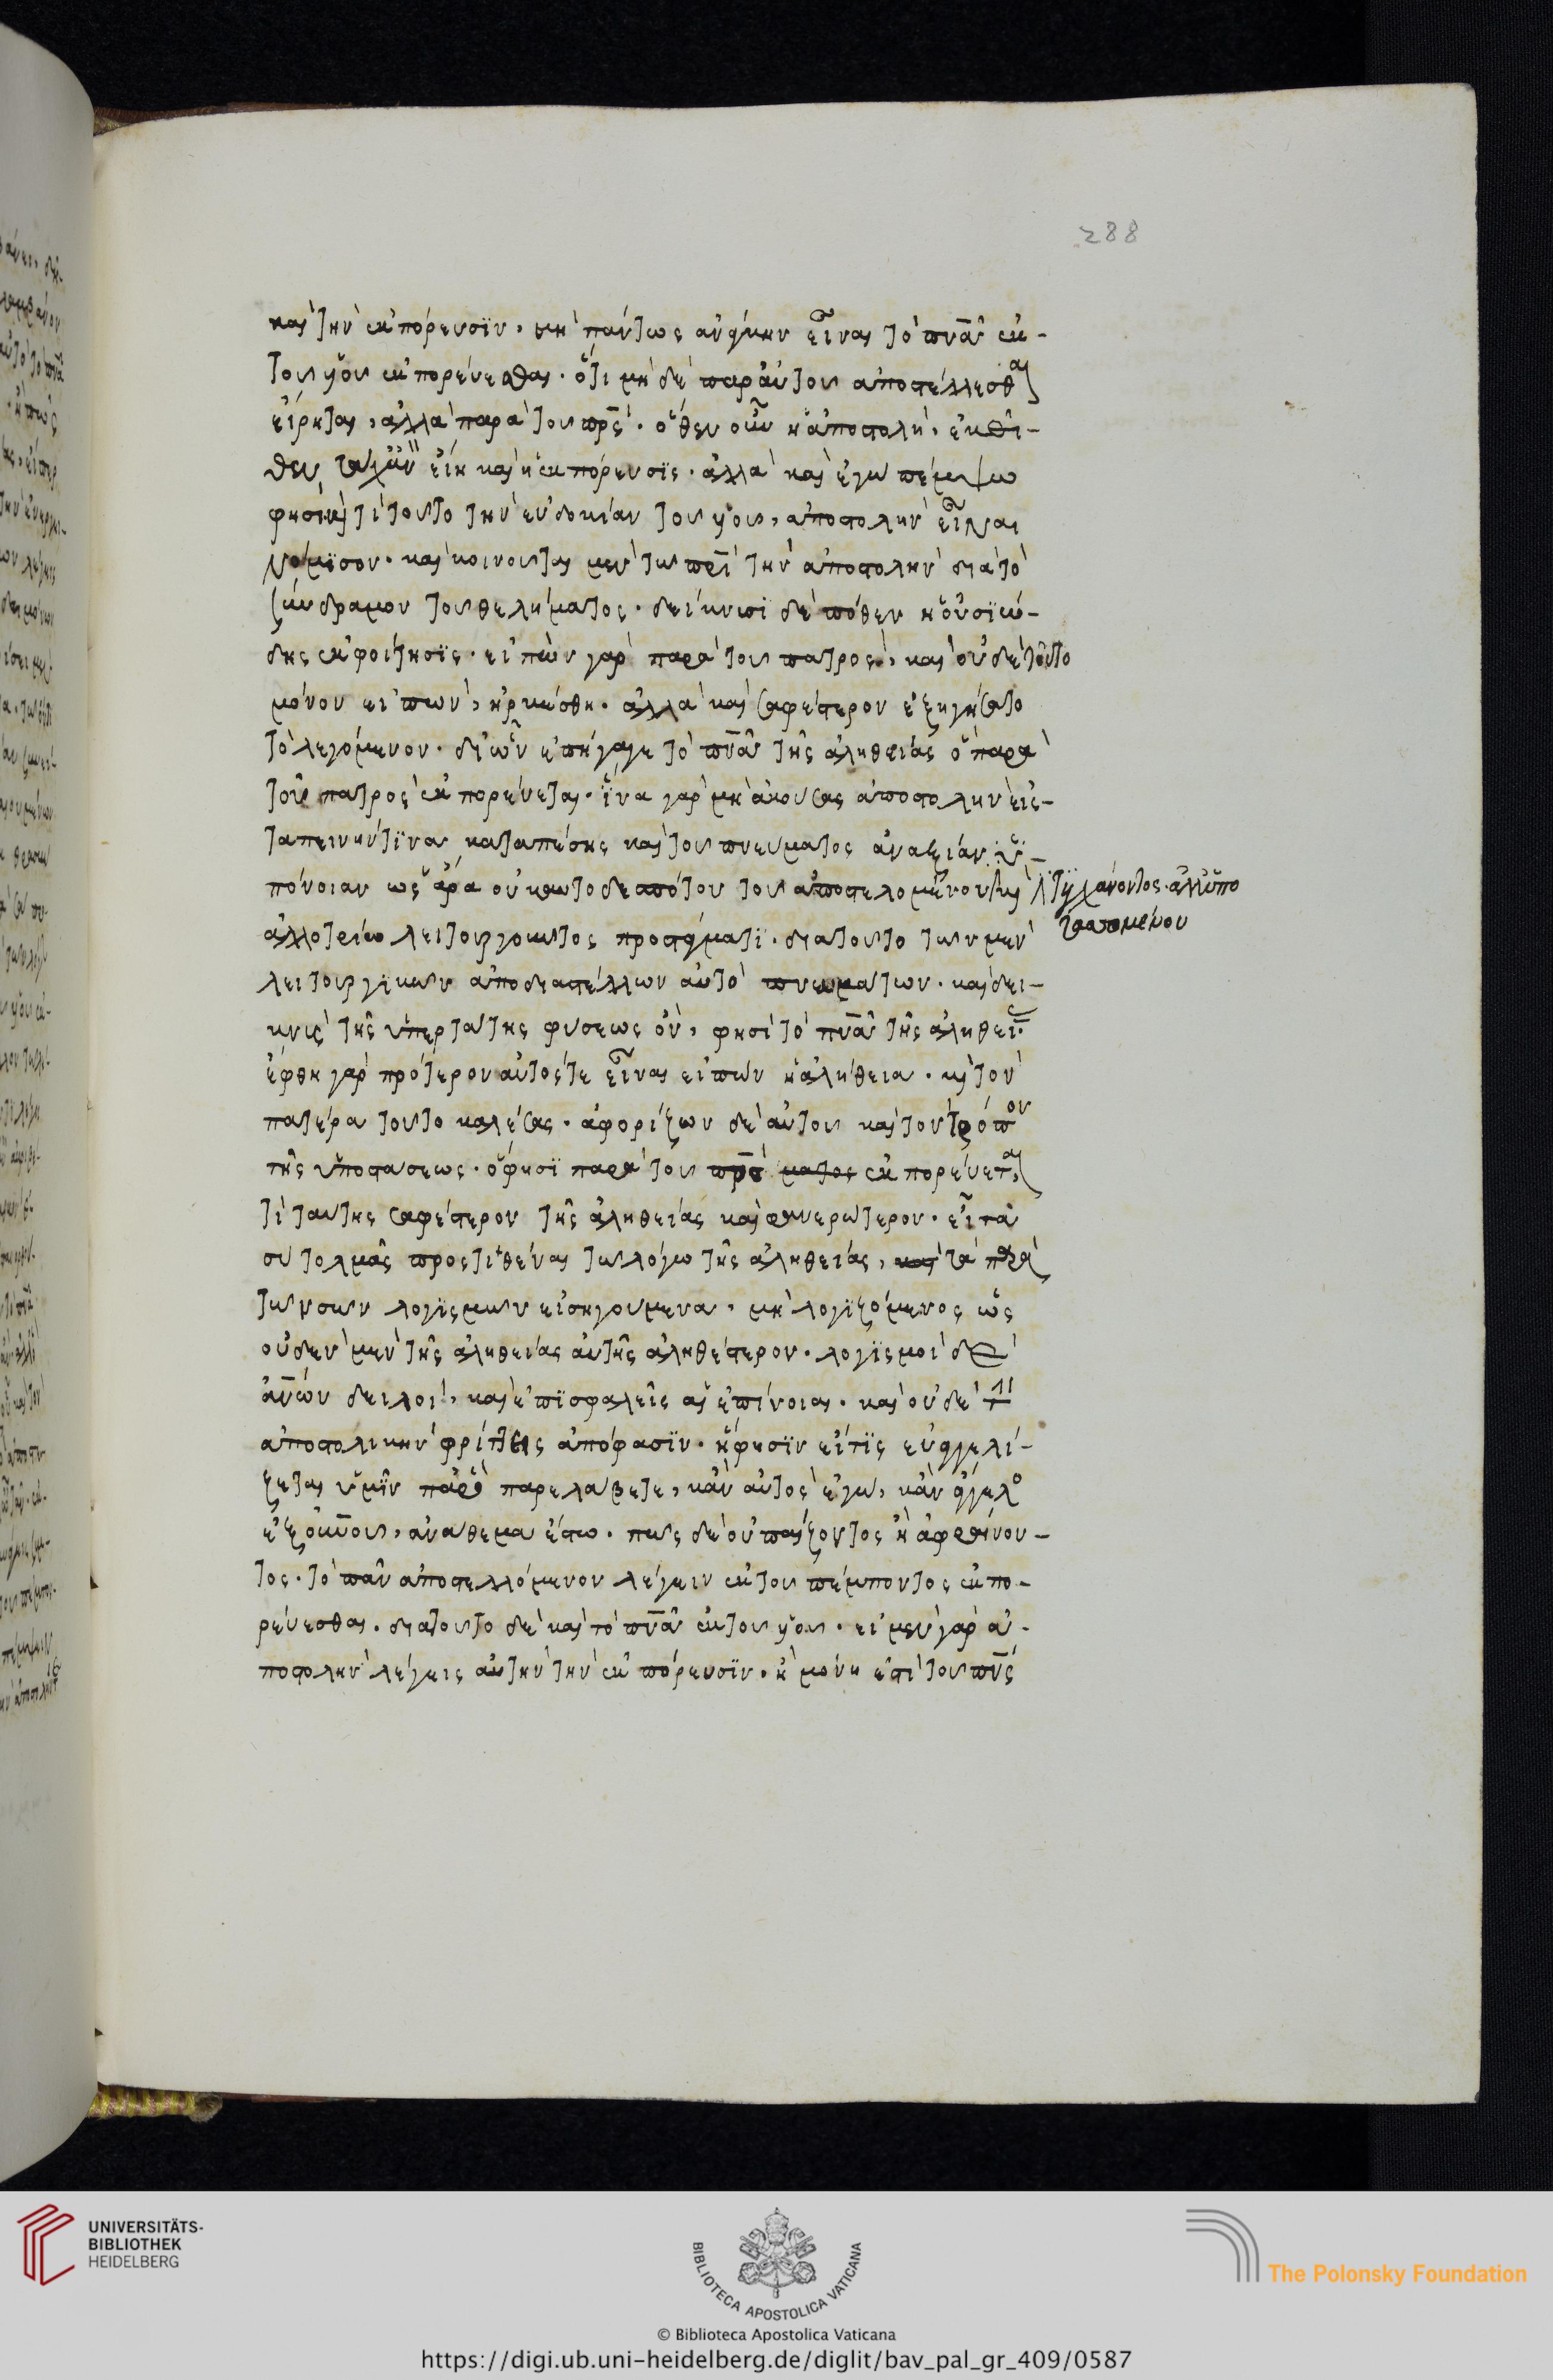 288
καὶ τὴν ἐκπόρευσϊν, μὴ πάντως ἀνάγκην εἶναι τὸ πνᾶ ἐκ-
τοῦ υοῦ ἐκπορεύεσθαι. ὅτι μὴ δὲ παραὐτοῦ ἀποστέλλεσθαι
εἴρηται, ἀλλὰ παρὰ τοῦ πρς. ὅθεν οὖν ἡ ἀποστολὴ, ἐκεῖ-
θεν εἴη καὶ ἡ ἐκπόρευσϊς. ἀλλὰ καὶ ἐγὼ πέμψω
φησὶ τὶ τοῦτο τὴν εὐδοκίαν τοῦ υοῦ, ἀποστολὴν εἶναι
νόμϊσον. καὶ κοινοῦται μὲν τῶ πρὶ τὴν ἀποστολὴν διὰ τὸ
σύνδρομον τοῦ θελήματος. δείκνυσϊ δὲ πόθεν ἡ οὐσϊώ-
δης ἐκφοίτησϊς. εἰπὼν γὰρ παρὰ τοῦ πατρὸς, καὶ οὐδὲ τοῦτο
μόνον εἰπὼν, ἠρκέσθη. ἀλλὰ καὶ σαφέστερον ἐξηγήσατο
τὸ λεγόμενον. δι' ὧν ἐπήγαγε τὸ πνᾶ τῆς ἀληθείας ὃ παρὰ
τοῦ πατρὸς ἐκπορεύεται. ἵνα γὰρ μὴ ἀκούσας ἀποστολὴν εἰς-
ταπεινήν τϊνα καταπέσης καὶ τοῦ πνεύματος ἀναξίαν ὑ-
πόνοιαν ὡς ἄρα οὐκ αὐτοδεσπότου τοῦ ἀποστελομένου
τϋγχάνοντος. ἀλλ' ὑπο
ταττομένου
ἀλλοτρίω λειτουργοῦντος προστάγματϊ. διατοῦτο τῶν μὲν
λειτουργϊκῶν ἀποδιαστέλλων αὐτὸ πνευμάτων. καὶ δει-
κνὺς τῆς ὑπερτάτης φύσεως ὂν, φησὶ τὸ πνᾶ τῆς ἀληθεί.
ἔφθη γὰρ πρότερον αὐτός τε εἶναι εἰπὼν ἡ ἀλήθεια. καὶ τὸν
πατέρα τοῦτο καλέσας. ἀφορίζων δὲ αὐτοῦ καὶ τὸν τρόπον
τῆς ὑποστάσεως. ὅ φησϊ παρὰ τοῦ πρς ματος ἐκπορεύεται
τὶ ταύτης σαφέστερον τῆς ἀληθείας καὶ φανερώτερον. εἶτα
σὺ τολμᾶς προςτιθέναι τῶ λόγω τῆς ἀληθείας, καὶ τὰ παρὰ
τῶν σῶν λογϊσμῶν εἰσηγούμενα, μὴ λογϊζόμενος ὡς
οὐδὲν μὲν τῆς ἀληθείας αὐτῆς ἀληθέστερον. λογϊσμοὶ δὲ
ἀνων δειλοὶ, καὶ ἐπϊσφαλεῖς αἱ ἐπίνοιαι. καὶ οὐδὲ τὴν
ἀποστολικὴν φρίττεις ἀπόφασϊν. ἥ φησϊν εἴ τϊς εὐαγγελί-
ζεται ὑμῖν παρ' ὃ παρελάβετε, κἂν αὐτὸς ἐγὼ, κἂν ἄγγελο
ἐξ οὐνου, ἀνάθεμα ἔστω. πῶς δὲ οὐ παίζοντος ἢ ἀφραίνον-
τος. τὸ πᾶν ἀποστελλόμενον λέγειν ἐκ τοῦ πέμποντος ἐκπο-
ρεύεσθαι. διατοῦτο δὲ καὶ τὸ πνᾶ ἐκ τοῦ υοῦ. εἰ μὲν γὰρ ἀ-
ποστολὴν λέγεις αὐτὴν τὴν ἐκπόρευσϊν. ἢ μόνη ἐπὶ τοῦ πνς
UNIVERSITÄTS-
BIBLIOTHEK
HEIDELBERG
BIBLIOTECA APOSTOLICA VATICANA
The Polonsky Foundation
© Biblioteca Apostolica Vaticana
https://digi.ub.uni-heidelberg.de/diglit/bav_pal_gr_409/0587